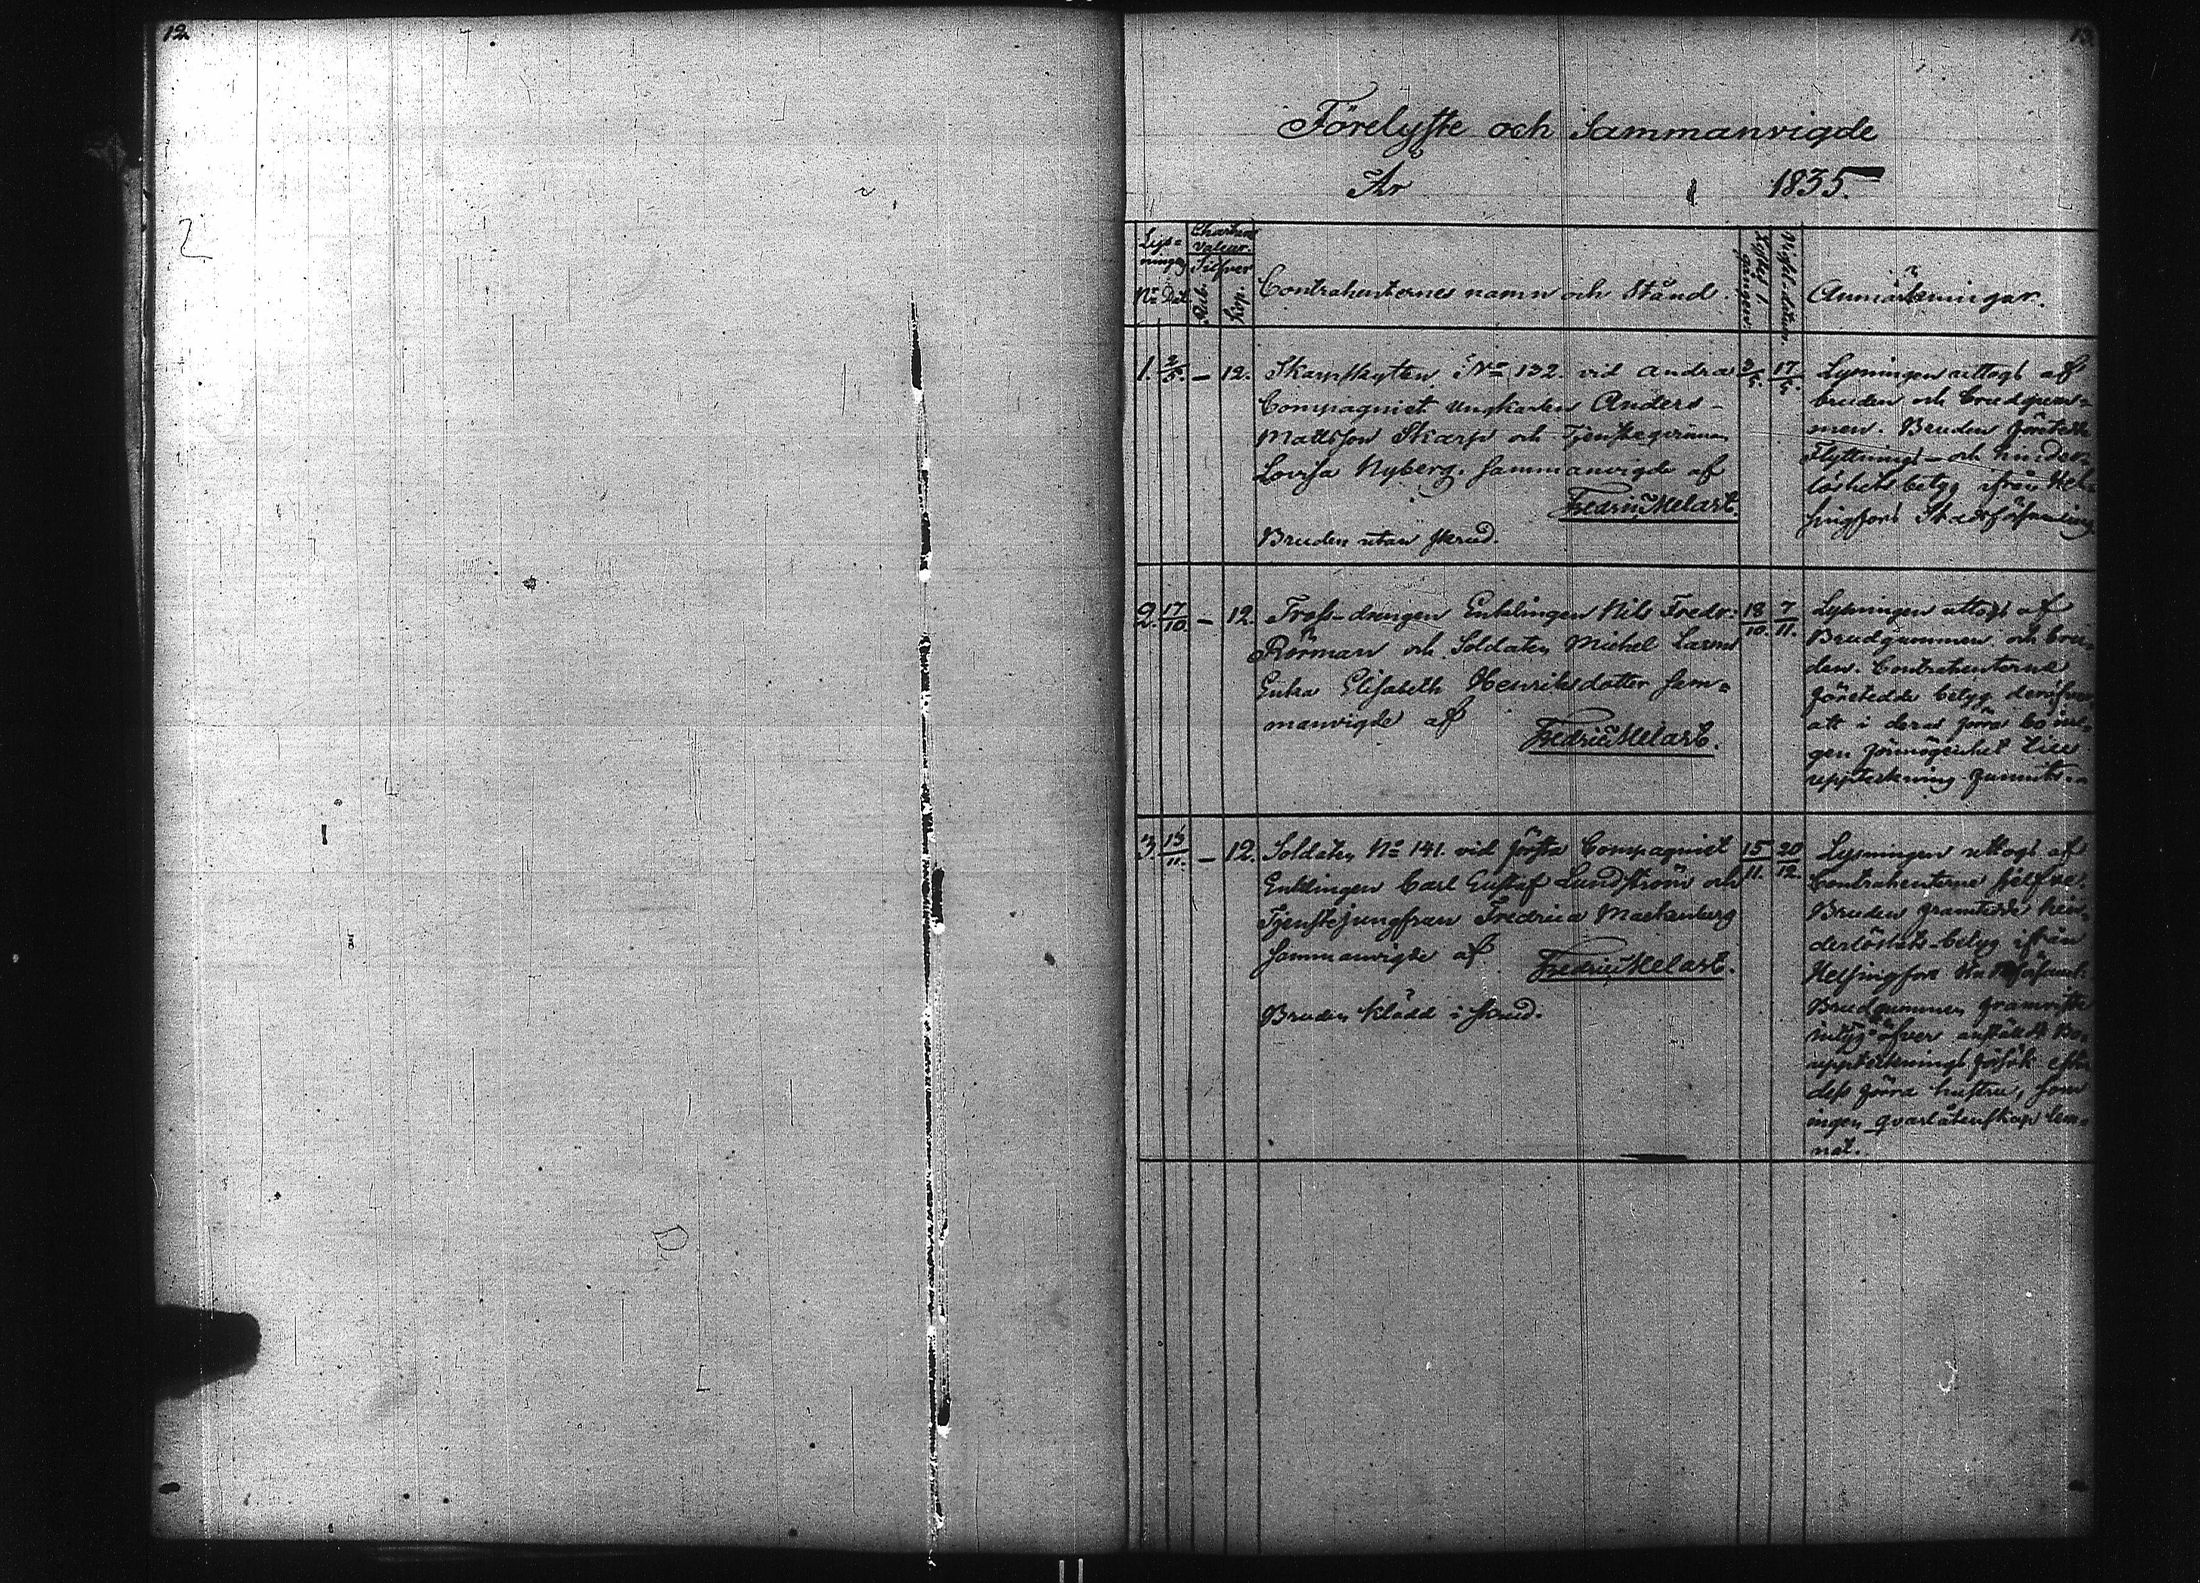 12.
13.
Förelyste och Sammanvigde
År 1835.
Lys-
ningen
No Dat.
Chartæ
Valeur.
Silfver
Rub. Kop.
Contrahenternes namn och Stånd.
Lyst 1.
gången.
Vigsel-datum.
Anmärkningar.
1. 2/5. – 12. Skarpskytten No 132. vid Andra
Compagniet Ungkarlen Anders
Mattsson Skarp och Tjenstepigan
Lovisa Nyberg. Sammanvigde af
Fredric Melart.
Bruden utan skrud.
3/5. 17/5.
Lysningen uttogs af
bruden och brudgum-
men. Bruden företedde
Flyttnings- och hinder-
löshets betyg ifrån Hel-
singfors Stadsförsamling
2. 17/10. – 12. Tross-drengen Enklingen Nils Fredr.
Rörman och Soldaten Michel Larms
Enka Elisabeth Henriksdotter Sam-
manvigde af
Fredric Melart.
18/10. 7/11.
Lysningen uttogs af
Brudgummen och bru-
den. Contrahenterne
företedde betyg deröfver
att i deras förra bo in-
gen förmögenhet till
uppteckning funnits.
3. 13/11. – 12. Soldaten No 141. vid första Compagniet
Enklingen Carl Gustaf Lundström och
Tjenstejungfrun Fredrica Mackenburg
Sammanvigde af
Fredric Melart.
Bruden klädd i skrud.
15/11. 20/12.
Lysningen uttogs af
Contrahenterne sjelfve.
Bruden framtedde hin-
derlöshets-betyg ifrån
Helsingfors församl.
Brudgummen framviste
intyg öfver anstäldt Bo-
uppteckningsförsök efter
dess förra hustru, som
ingen qvarlåtenskap lem-
nat.